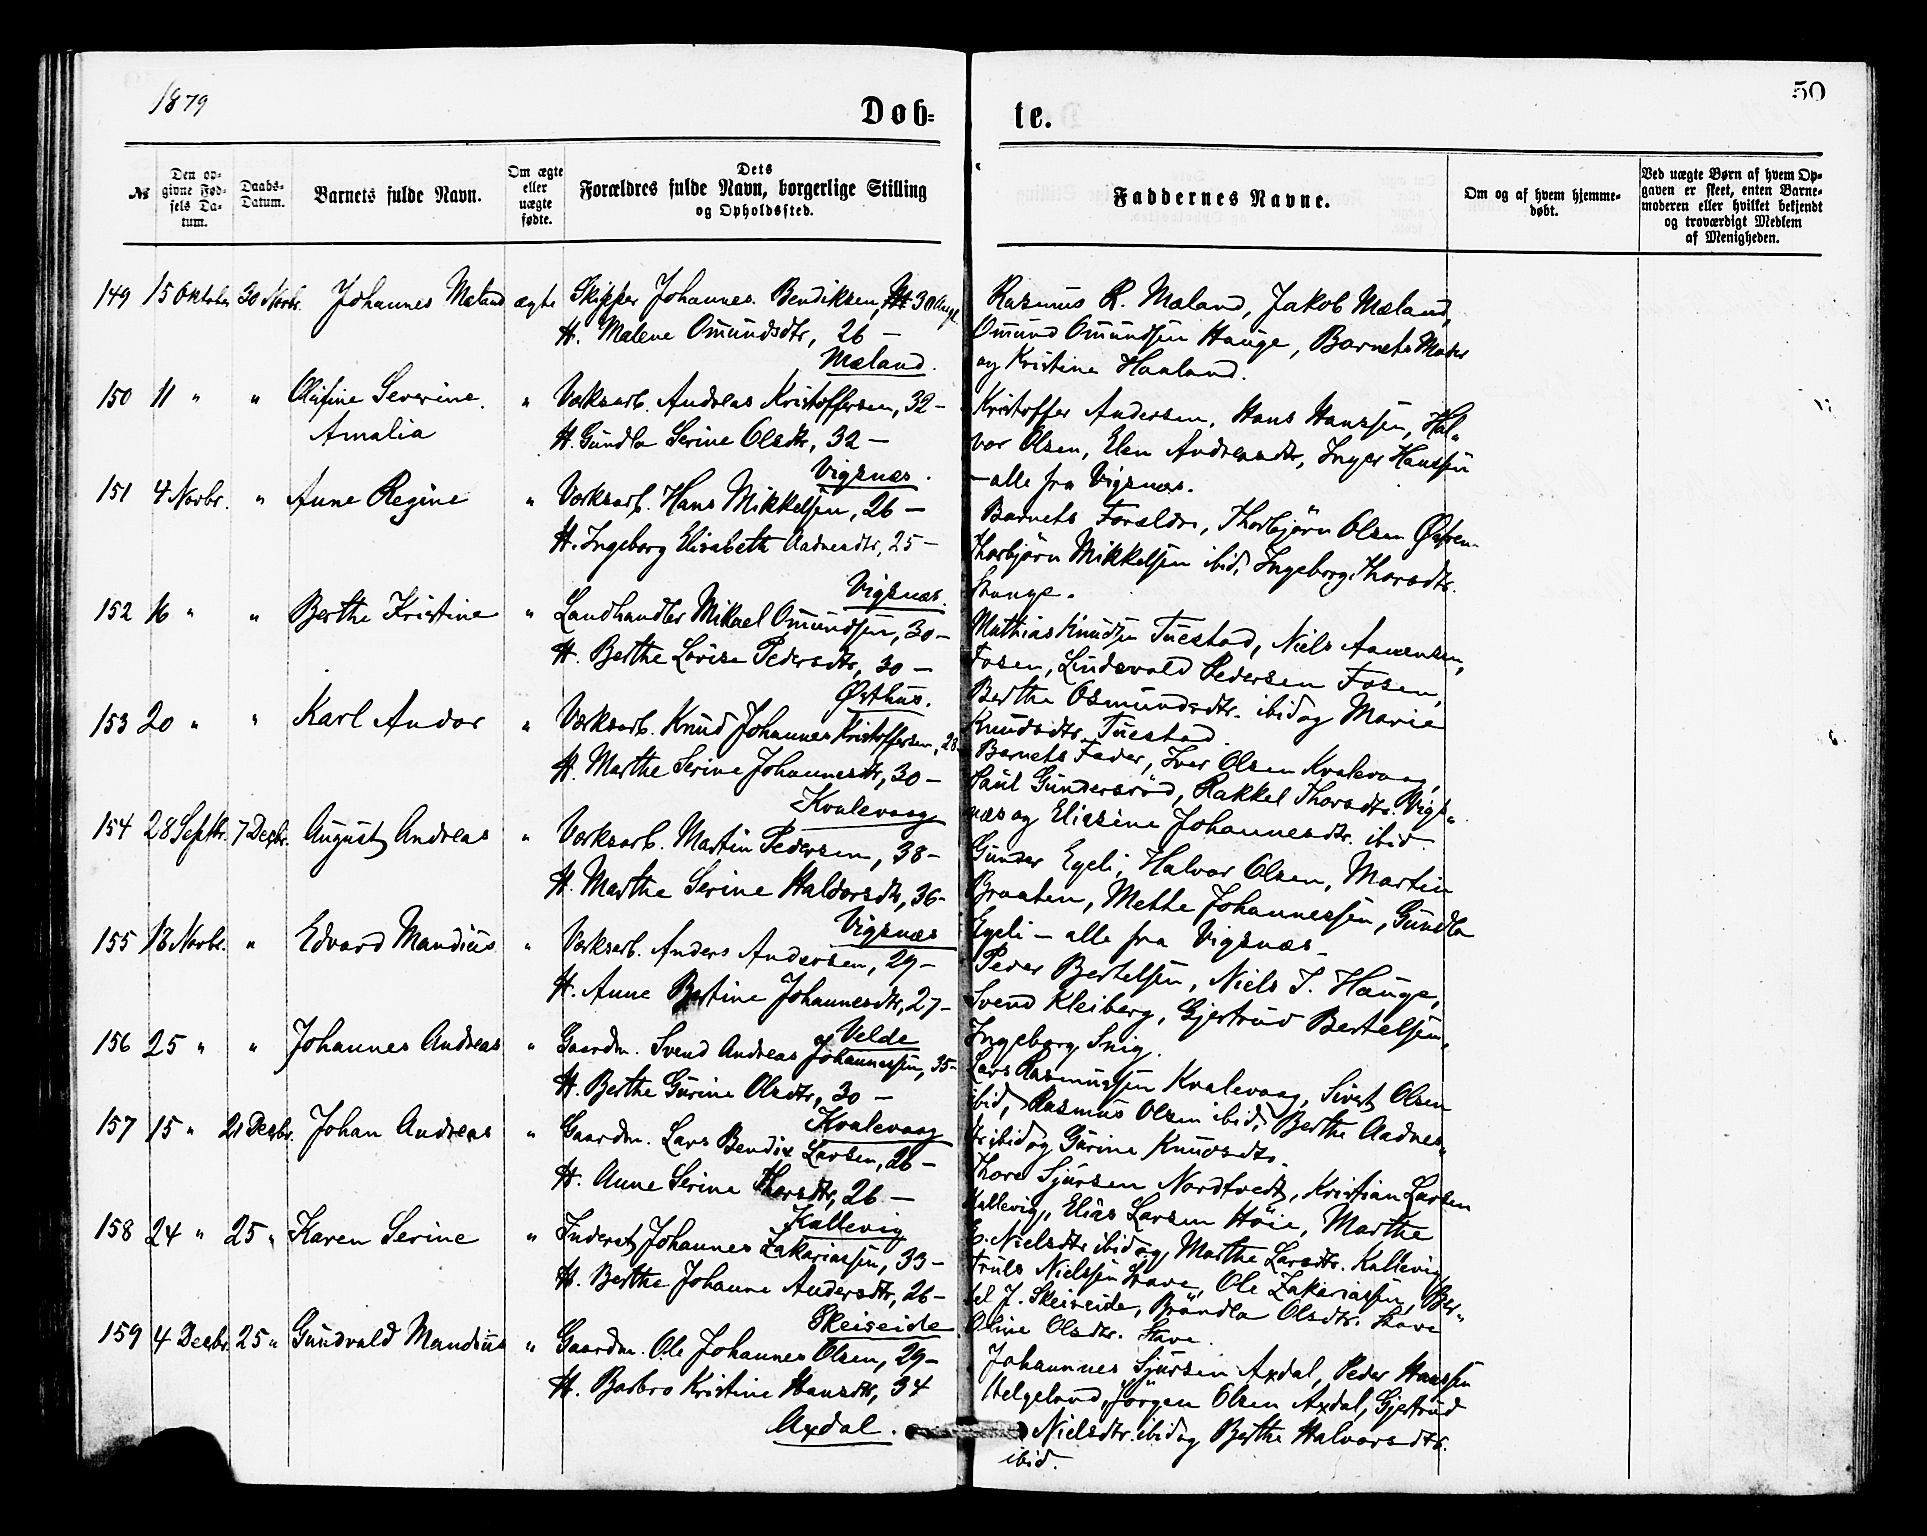 1879
50
Døb=
te.
№
Den op-
givne Fød-
sels Da-
tum.
Daabs-
Datum.
Barnets fulde Navn.
Om ægte
eller
uægte
fødte.
Dets
Forældres fulde Navn, borgerlige Stilling
og Opholdssted.
Faddernes Navne.
Om og af hvem hjemme-
døbt.
Ved uægte Børn af hvem Op-
gaven er skeet, enten Barne-
moderen eller hvilket bekjendt
og troværdigt Medlem
af Menigheden.
149 15 Oktober 30 Novbr. Johannes Mæland ægte Skipper Johannes Bendiksen, 30 Aar
H. Malene Omundsdtr, 26 —
Mæland.
Rasmus R. Mæland, Jakob Mæland,
Omund Omundsen Hauge, Barnets Moder
og Kristine Haaland.
150 11 " " Olufine Severine " Værksarb. Andreas Kristoffersen, 32 —
Amalia H. Gundla Serine Olsdtr, 32 —
Vigsnæs.
Kristoffer Andersen, Hans Hanssen, Hal-
vor Olsen, Elen Andreasdtr, Inger Hanssen
— alle fra Vigsnæs.
151 4 Novbr. " Anne Regine " Værksarb. Hans Mikkelsen, 26 —
H. Ingeborg Elisabeth Aadnesdtr, 25 —
Vigsnæs.
Barnets Forældre, Thorbjörn Olsen
Thorbjørn Mikkelsen ibid, Ingeborg Thorsdtr.
Stange.
152 16 " " Berthe Kristine " Landhandler Mikael Omundsen, 30 —
H. Berthe Lovise Pedersdtr, 30 —
Østhus.
Mathias Knudsen Tuestad, Niels Aanensen,
Fosen, Lindsvald Pedersen Fosen,
Berthe Osmundsdtr. ibid og Marie
Knudsdtr. Tuestad.
153 20 " " Karl Andor " Værksarb. Knud Johannes Kristoffersen, 28
H. Marthe Serine Johannesdtr, 30 —
Kvalevaag
Barnets Fader, Iver Olsen Kvalevaag,
Paul Gundersröd, Rakkel Thorsdtr. Vigs-
næs og Eliesine Johannesdtr. ibid
154 28 Septbr. 7 Decbr. August Andreas " Værksarb. Martin Pedersen, 38 —
H. Marthe Serine Haldorsdtr, 36 —
Vigsnæs
Gunder Egeli, Halvor Olsen, Martin
Braaten, Mette Johannessen, Gundla
Egeli — alle fra Vigsnæs —
155 18 Novbr. " Edvard Mandius " Værksarb. Anders Andersen, 29 —
H. Anne Bertine Johannesdtr, 27 —
Velde
Peder Bertelsen, Niels J. Hauge,
Svend Kleiberg, Gjertrud Bertelsen,
Ingeborg Snig.
156 25 " " Johannes Andreas " Gaardm. Svend Andreas Johannessen, 35 —
H. Berthe Gurine Olsdtr, 30 —
Kvalevaag
Lars Rasmussen Kvalevaag, Sivert Olsen
ibid, Rasmus Olsen ibid, Berthe Aadnes-
dtr ibid og Gurine Knudsdtr.
157 15 " 21 Decbr. Johan Andreas " Gaardm. Lars Bendix Larsen, 26 —
H. Anne Serine Thorsdtr, 26 —
Kallevig
Thore Sjursen Nordtvedt, Kristian Larsen
Kallevig, Elias Larsen Höie, Marthe
E. Nielsdtr ibid og Marthe Larsdtr. Kallevig
158 24 " 25 " Karen Serine " Inderst Johannes Zakariassen, 33 —
H. Berthe Johanne Andersdtr, 26 —
Skeiseide
Truls Nielssen Stave, Ole Zakariassen, Ber-
tel J. Skeiseide, Bröndla Olsdtr. Stave
Oline Olsdtr. Stave.
159 4 Decbr. 25 " Gundvald Mandius " Gaardm. Ole Johannes Olsen, 29 —
H. Barbro Kristine Hansdtr, 34
Axdal.
Johannes Sjursen Axdal, Peder Hanssen
Helgeland, Jörgen Olsen Axdal, Gjertrud
Nielsdtr. ibid og Berthe Halvorsdtr.
ibid.